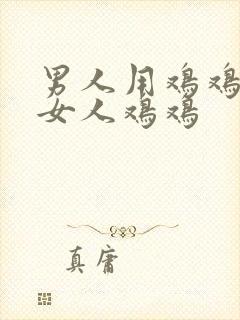 男人用鸡鸡
女人鸡鸡
真庸